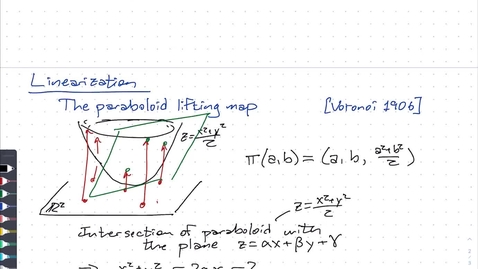 Linearization
The paraboloid lifting map [Voronoi 1906]
z = x²+y²/2
π(a,b) = (a, b, a²+b²/2)
ℝ²
z = x²+y²/2
Intersection of paraboloid with
the plane z = αx + βy + γ